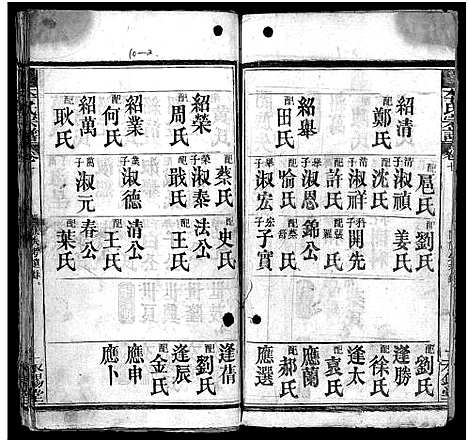 10-2
紹清
配鄭氏
紹舉
配田氏
配扈氏
清子淑禎
配沈氏
清子淑恩
配許氏
舉子淑宏
配喻氏
配劉氏
配姜氏
科子開先
配聶氏
錦公
配蔡氏
宏子子實
逢勝
配徐氏
逢太
配袁氏
應蘭
配郝氏
應選
紹榮
配周氏
紹業
配何氏
紹萬
配耿氏
配蔡氏
榮子淑泰
配戢氏
業子淑德
萬子淑元
配史氏
法公
配王氏
清公
配王氏
春公
配葉氏
逢倩
配劉氏
逢辰
配金氏
應申
應卜